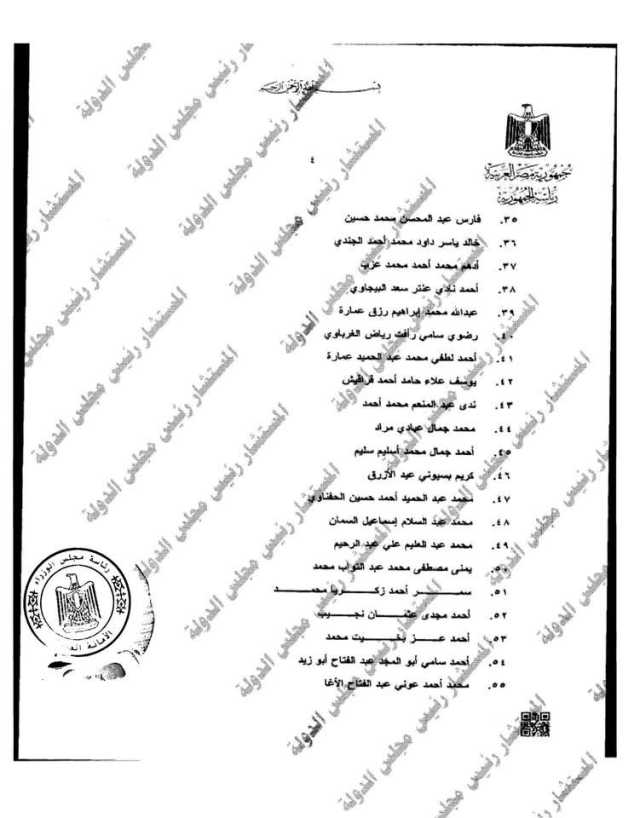 بسم الله الرحمن الرحيم
٤
جمهورية مصر العربية
رئاسة الجمهورية
٣٥. فارس عبد المحسن محمد حسين
٣٦. خالد ياسر داود محمد أحمد الجندي
٣٧. أدهم محمد أحمد محمد عزب
٣٨. أحمد نادي عنتر سعد البيجاوي
٣٩. عبدالله محمد إبراهيم رزق عمارة
٤٠. رضوي سامي رأفت رياض الغرباوي
٤١. أحمد لطفي محمد عبد الحميد عمارة
٤٢. يوسف علاء حامد أحمد قرافيش
٤٣. ندى عبد المنعم محمد أحمد
٤٤. محمد جمال عبادي مراد
٤٥. أحمد جمال محمد أسليم سليم
٤٦. كريم بسيوني عبد الأزرق
٤٧. محمد عبد الحميد أحمد حسين الحفناوي
٤٨. محمد عبد السلام إسماعيل السمان
٤٩. محمد عبد العليم علي عبد الرحيم
٥٠. يمنى مصطفى محمد عبد التواب محمد
٥١. سمـــر أحمد زكـــريا محمـــد
٥٢. أحمد مجدى عثمـــان نجـــيب
٥٣. أحمد عـــز بخـــيت محمد
٥٤. أحمد سامي أبو المجد عبد الفتاح أبو زيد
٥٥. محمد أحمد عوني عبد الفتاح الأغا
رئاسة مجلس الوزراء
الأمانة
المستشار رئيس مجلس الدولة